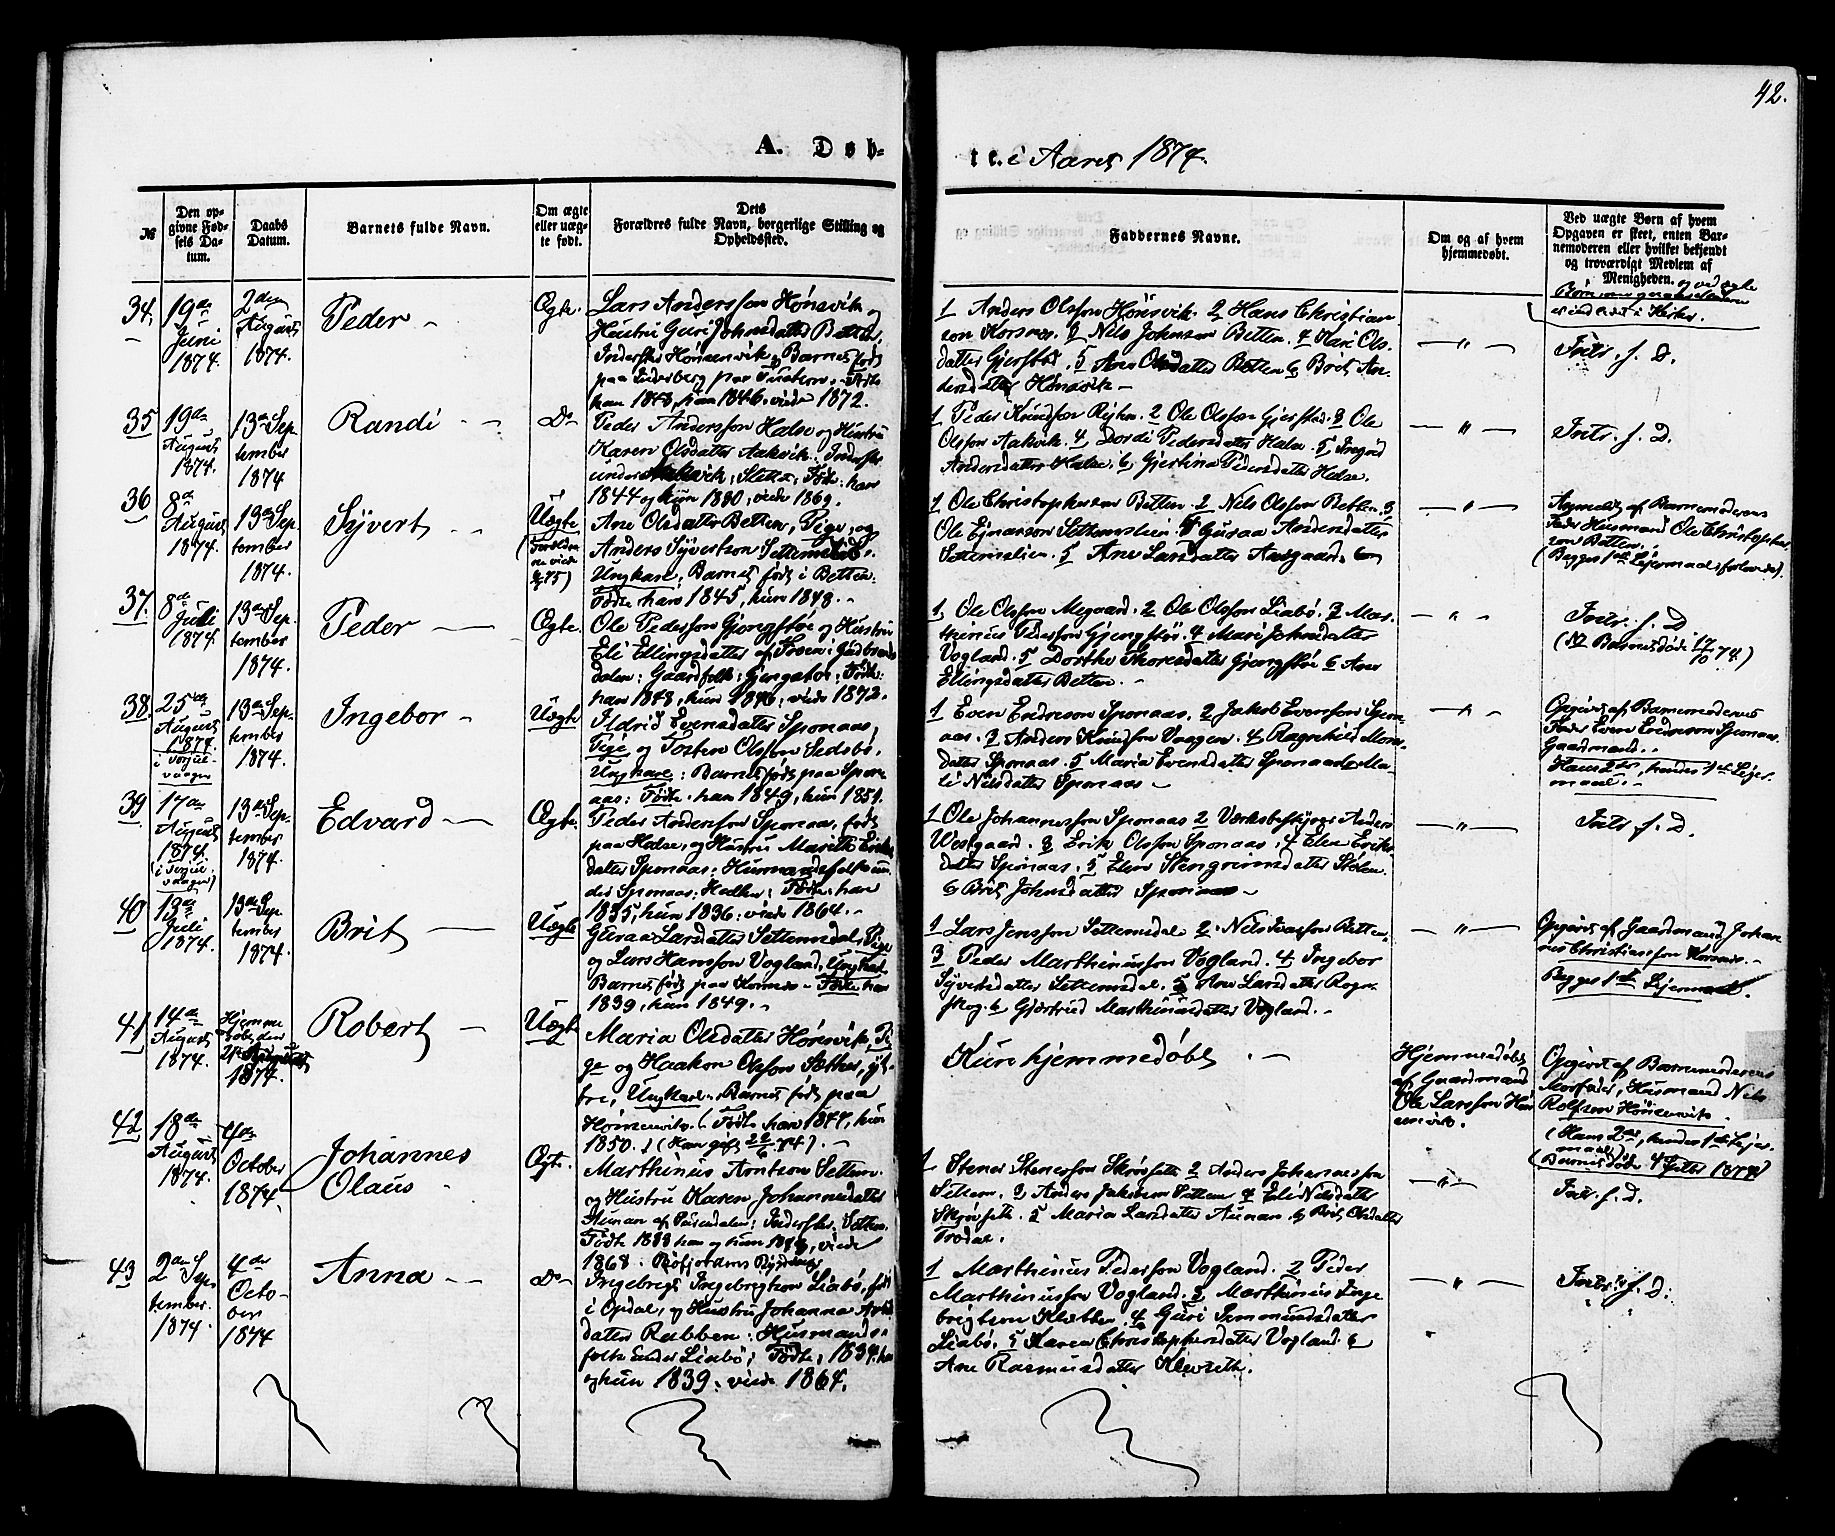 42.
A. Døb-
te. i Aaret 1874.
№
Den op-
givne Fød-
sels Da-
tum.
Daabs
Datum.
Barnets fulde Navn.
Om ægte
eller uæg-
te født.
Dets
Forældres fulde Navn, borgerlige Stilling og
Opholdssted.
Faddernes Navne.
Om og af hvem
hjemmedøbt.
Ved uægte Børn af hvem
Opgaven er skeet, enten Bar-
nemoderen eller hvilket bekjendt
og troværdigt Medlem af
Menigheden. og ved ægte
34.
19de
Juni
1874.
2den
August
1874.
Peder -
Ægte.
Lars Andersson Hönsvik og
Hustru Guri Johnsdatter Betten,
Inderster Hönsenvik; Barnet født
han 1848, hun 1846. viede 1872.
1 Anders Olsson Hönsvik. 2 Hans Christian-
son Korsnes. 3 Nils Johnson Betten. 4 Mari Ols-
datter Gjerstad. 5 Ane Olsdatter Betten 6 Brit An-
dersdatter Hönsvik -
- " -
Intr. f. D.
35
19de
August
1874.
13de Sep-
tember
1874
Randi - -
Do
Peder Andersson Halse og Hustru
Karen Olsdatter Aakvik. Inderster
1844 og hun 1830, viede 1869.
1 Peder Knudson 2 Ole Olsson Gjerstad. 3 Ole
Olsson Aakvik. 4 Dordi Pedersdatter Halse. 5 Ingrid
Andersdatter Halse. 6 Gjertine Pedersdatter Halse.
- " -
Intr. f. D.
36
8de
August
1874.
13de Sep-
tember
1874.
Syvert -
Uægte
(Forældre-
ne viede
75)
Ane Olsdatter Betten, Pige, og
Anders Syvertson Settemslie.
Ungkarl; Barnet født i Betten.
Fødte han 1845, hun 1848. -
1. Ole Christophersen Betten. 2 Nils Olsson Betten. 3
Ole Ejnarson Settemslien 4 Guraa Andersdatter
Settemslien. 5 Ane Larsdatter Aasgaard.
- " -
Anmeldt af Barnemoderens
Fader Husmand Ole Christopher-
son Betten.
(Begges 1ste Lejermaal forlovede).
37.
8de
Juli
1874.
13de Sep-
tember
1874.
Peder -
Ægte.
Ole Pederson Gjengstöe og Hustru
Eli Ellingsdatter af Froen i Gudbrands
dalen: Gaardfolk: Gjengstöe: Fødte
han 1848, hun 1846; viede 1872.
1. Ole Olsson Megaard. 2 Ole Olsson Liabö. 3 Mar-
thinus Pederson Gjengstöe. 4 Mari Johnsdatter
Vogland. 5 Dorthe Thoresdatter Gjengstöe 6 Ane
Ellingsdatter Betten. -
- " -
Intr. f. D
(NB Barnet døde 17/10 74.)
38.
25de
August
1874.
13de Sep-
tember
1874.
Ingebor -
Uægte
Ildrid Evensdatter Sponaas,
Pige, og Torsten Olsson Sedsbö,
Ungkarl: Barnet født paa Spon-
aas: Fødte han 1849, hun 1851.
1 Even Endreson Sponaas. 2 Jakob Evenson Spon-
aas. 3 Anders Knudson Vaagen. 4 Ragnhild
datter Sponaas. 5 Maria Evensdatter Sponaas 6 Ma-
li Nilsdatter Sponaas -
- " -
Opgivet af Barnemoderens
Fader Even Endreson Sponaas.
Gaardmand. -
Hans 2det, hendes 1ste Lejer-
maal. -
39
17de
August
1874.
13de Sep-
tember
1874.
Edvard -
Ægte.
Peder Andersson Sponaas, født
paa Halse, og Hustru Marith Eriks-
datter Sponaas: Husmandsfolk un-
der Sponaas: Hallen: Fødte: han
1835, hun 1836: viede 1864. -
1 Ole Johannesson Sponaas 2 Værksbestyrer Anders
Vestgaard. 3 Erik Olsson Sponaas. 4 Elen Eriks-
datter Sponaas. 5 Elen Stengrimsdatter Stölen.
6 Brit Johnsdatter Sponaas -
- " -
Intr. f. D.
40
13de
Juli
1874.
13de Sep
tember
1874.
Brit -
Uægte
Guraa Larsdatter Settemsdal, Pige
og Lars Hansson Vogland, Ungkarl
Barnet født paa Kornes - Fødte han
1839, hun 1849. -
1 Lars Jensson Settemsdal 2. Nils Betten
3 Peder Marthinusson Vogland. 4 Ingebor
Syversdatter Settemsdal. 5 Ane Larsdatter Rogn-
skog. 6 Gjertrud Marthinusdatter Vogland. -
- " -
Opgivet af Gaardmand Johan-
nes Christiansson Kornes. -
Begges 1ste Lejermaal.
41
14de
August
1874.
Hjemme
døbt den
1874.
Robert -
Uægte
Maria Olsdatter Hönsvik, Pi-
ge og Haakon Olsson Sæther, yt-
tre, Ungkarl: Barnet født paa
Hönsenvik. (Fødte han 1847, hun
1850.) (Han gift 22/6 74). -
Kun hjemmedøbt. -
Hjemmedøbt
af Gaardmand
Ole Larsson Hön-
senvik.
Opgivet af Barnemoderens
Morfader, Husmand Nils
Rolfson Hönsenvik.
(Hans 2det, hendes 1ste Lejer-
maal)
42
18de
August
1874.
4de
October
1874
Johannes
Olaus -
Ægte.
Marthinus Arntson Settem
og Hustru Karen Johannesdatter
Aunan af Surendalen; Inderster: Settem.
1868.
1 Stener Stenersson Skrövseth 2 Anders Johannesson
Settem. 3 Anders Jakobson Settem 4 Eli Nilsdatter
Skrövseth. 5 Maria Larsdatter Aunan. 6 Brit Olsdatter
Trodal.
- " -
Intr. f. D.
43
2den Sep-
tember.
1874.
4de
Octo-
ber
1874
Anna - -
Do
Ingebrigt Ingebrigtson Liabö, født
i Opdal, og Hustru Johanna
datter Rabben: Husmands-
folk under Liabö; Fødte: 1834. han
og hun 1839: viede 1864.
1 Marthinus Pederson Vogland. 2 Peder
Marthinusson Vogland. 3 Marthinus Inge-
brigtson Kletten. 4 Guri Ommundsdatter
Liabö. 5 Karen Christophersdatter Vogland. 6
Ane Rasmusdatter Klevseth.
- " -
Intr. f. D.